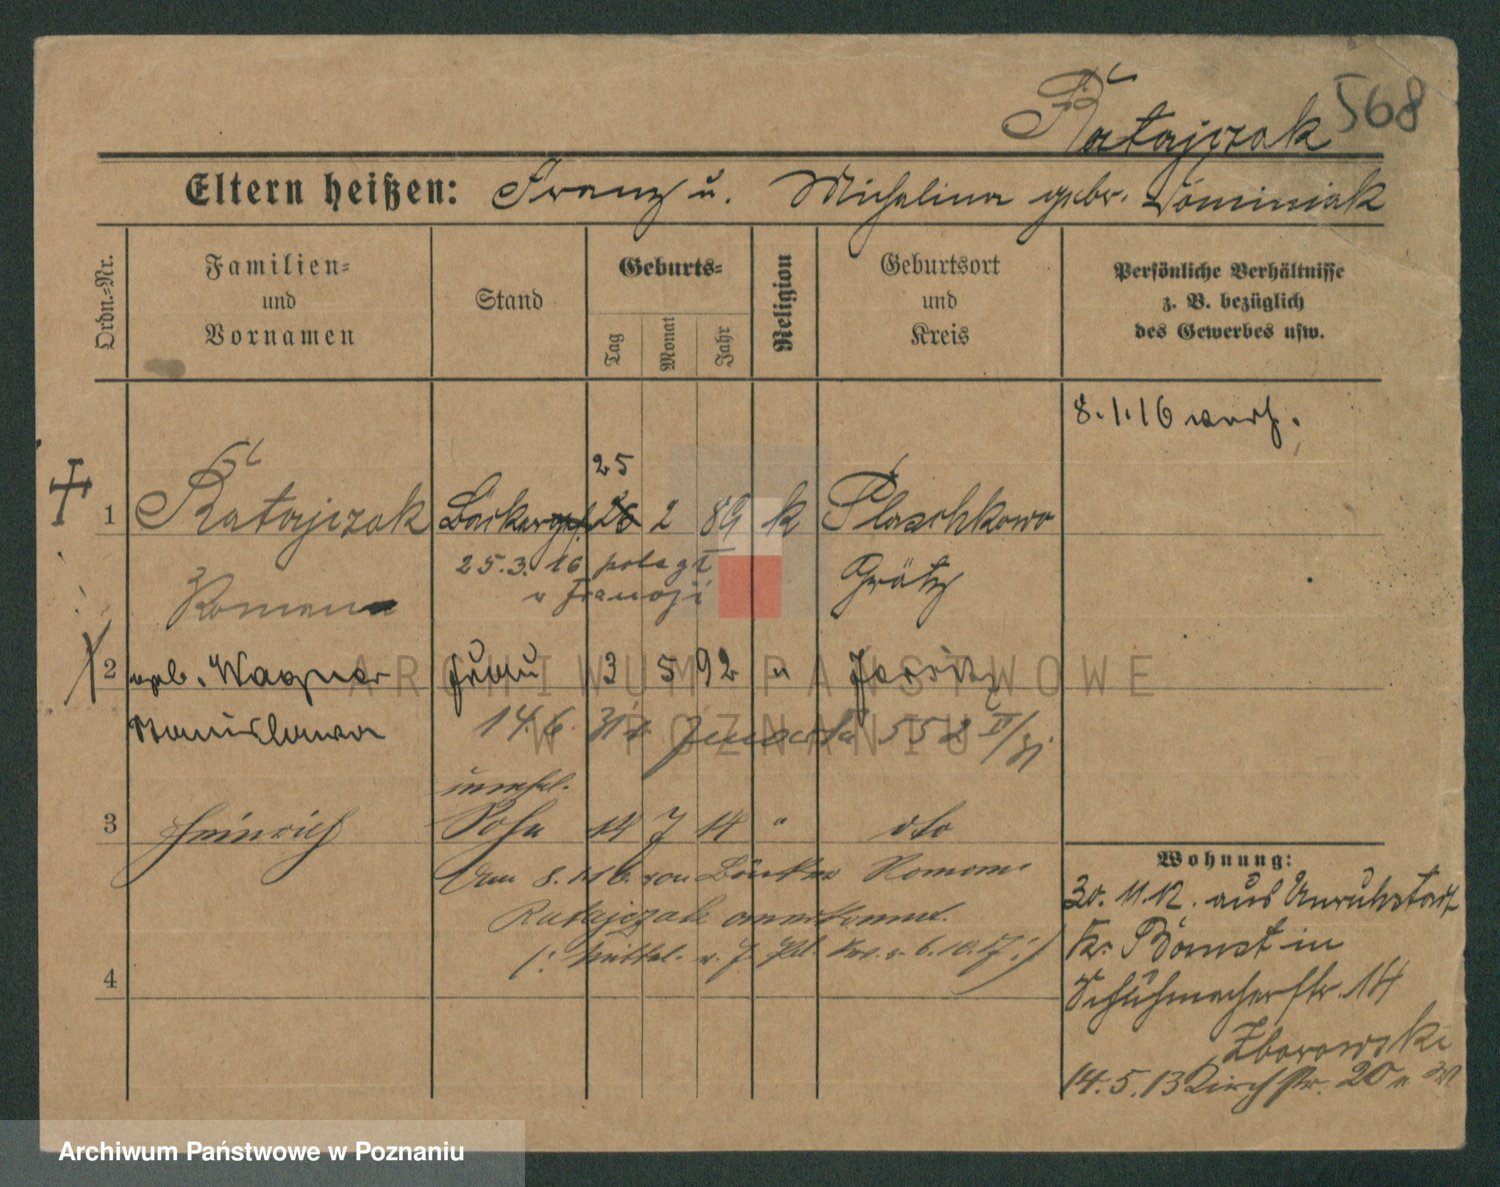 Ratajczak 568
Eltern heißen: Franz u. Michalina gebr. Dominiak
Ordn.-Nr.
Familien-
und
Vornamen
Stand
Geburts-
Tag
Monat
Jahr
Religion
Geburtsort
und
Kreis
Persönliche Verhältnisse
z. B. bezüglich
des Gewerbes usw.
8.1.16 verh.
25
1 Ratajczak Bäckerges. 26 2 89 k Plaschkowo
25.3.16 poległ
Roman Grätz
w Francji
2 geb. Wagner Frau 3 5 92 " Jersitz
Stanislawa 14.6.
unehl.
3 Heinrich Sohn 14 7 14 " dto
Am 8.1.16. von Bäcker Roman
Ratajczak anerkannt.
4
Wohnung:
30.11.12. aus Unruhstadt
Kr. Bomst in
Schuhmacherstr. 14
Zborowski
14.5.13 Kirchstr. 20
ARCHIWUM PAŃSTWOWE
W POZNANIU
Archiwum Państwowe w Poznaniu